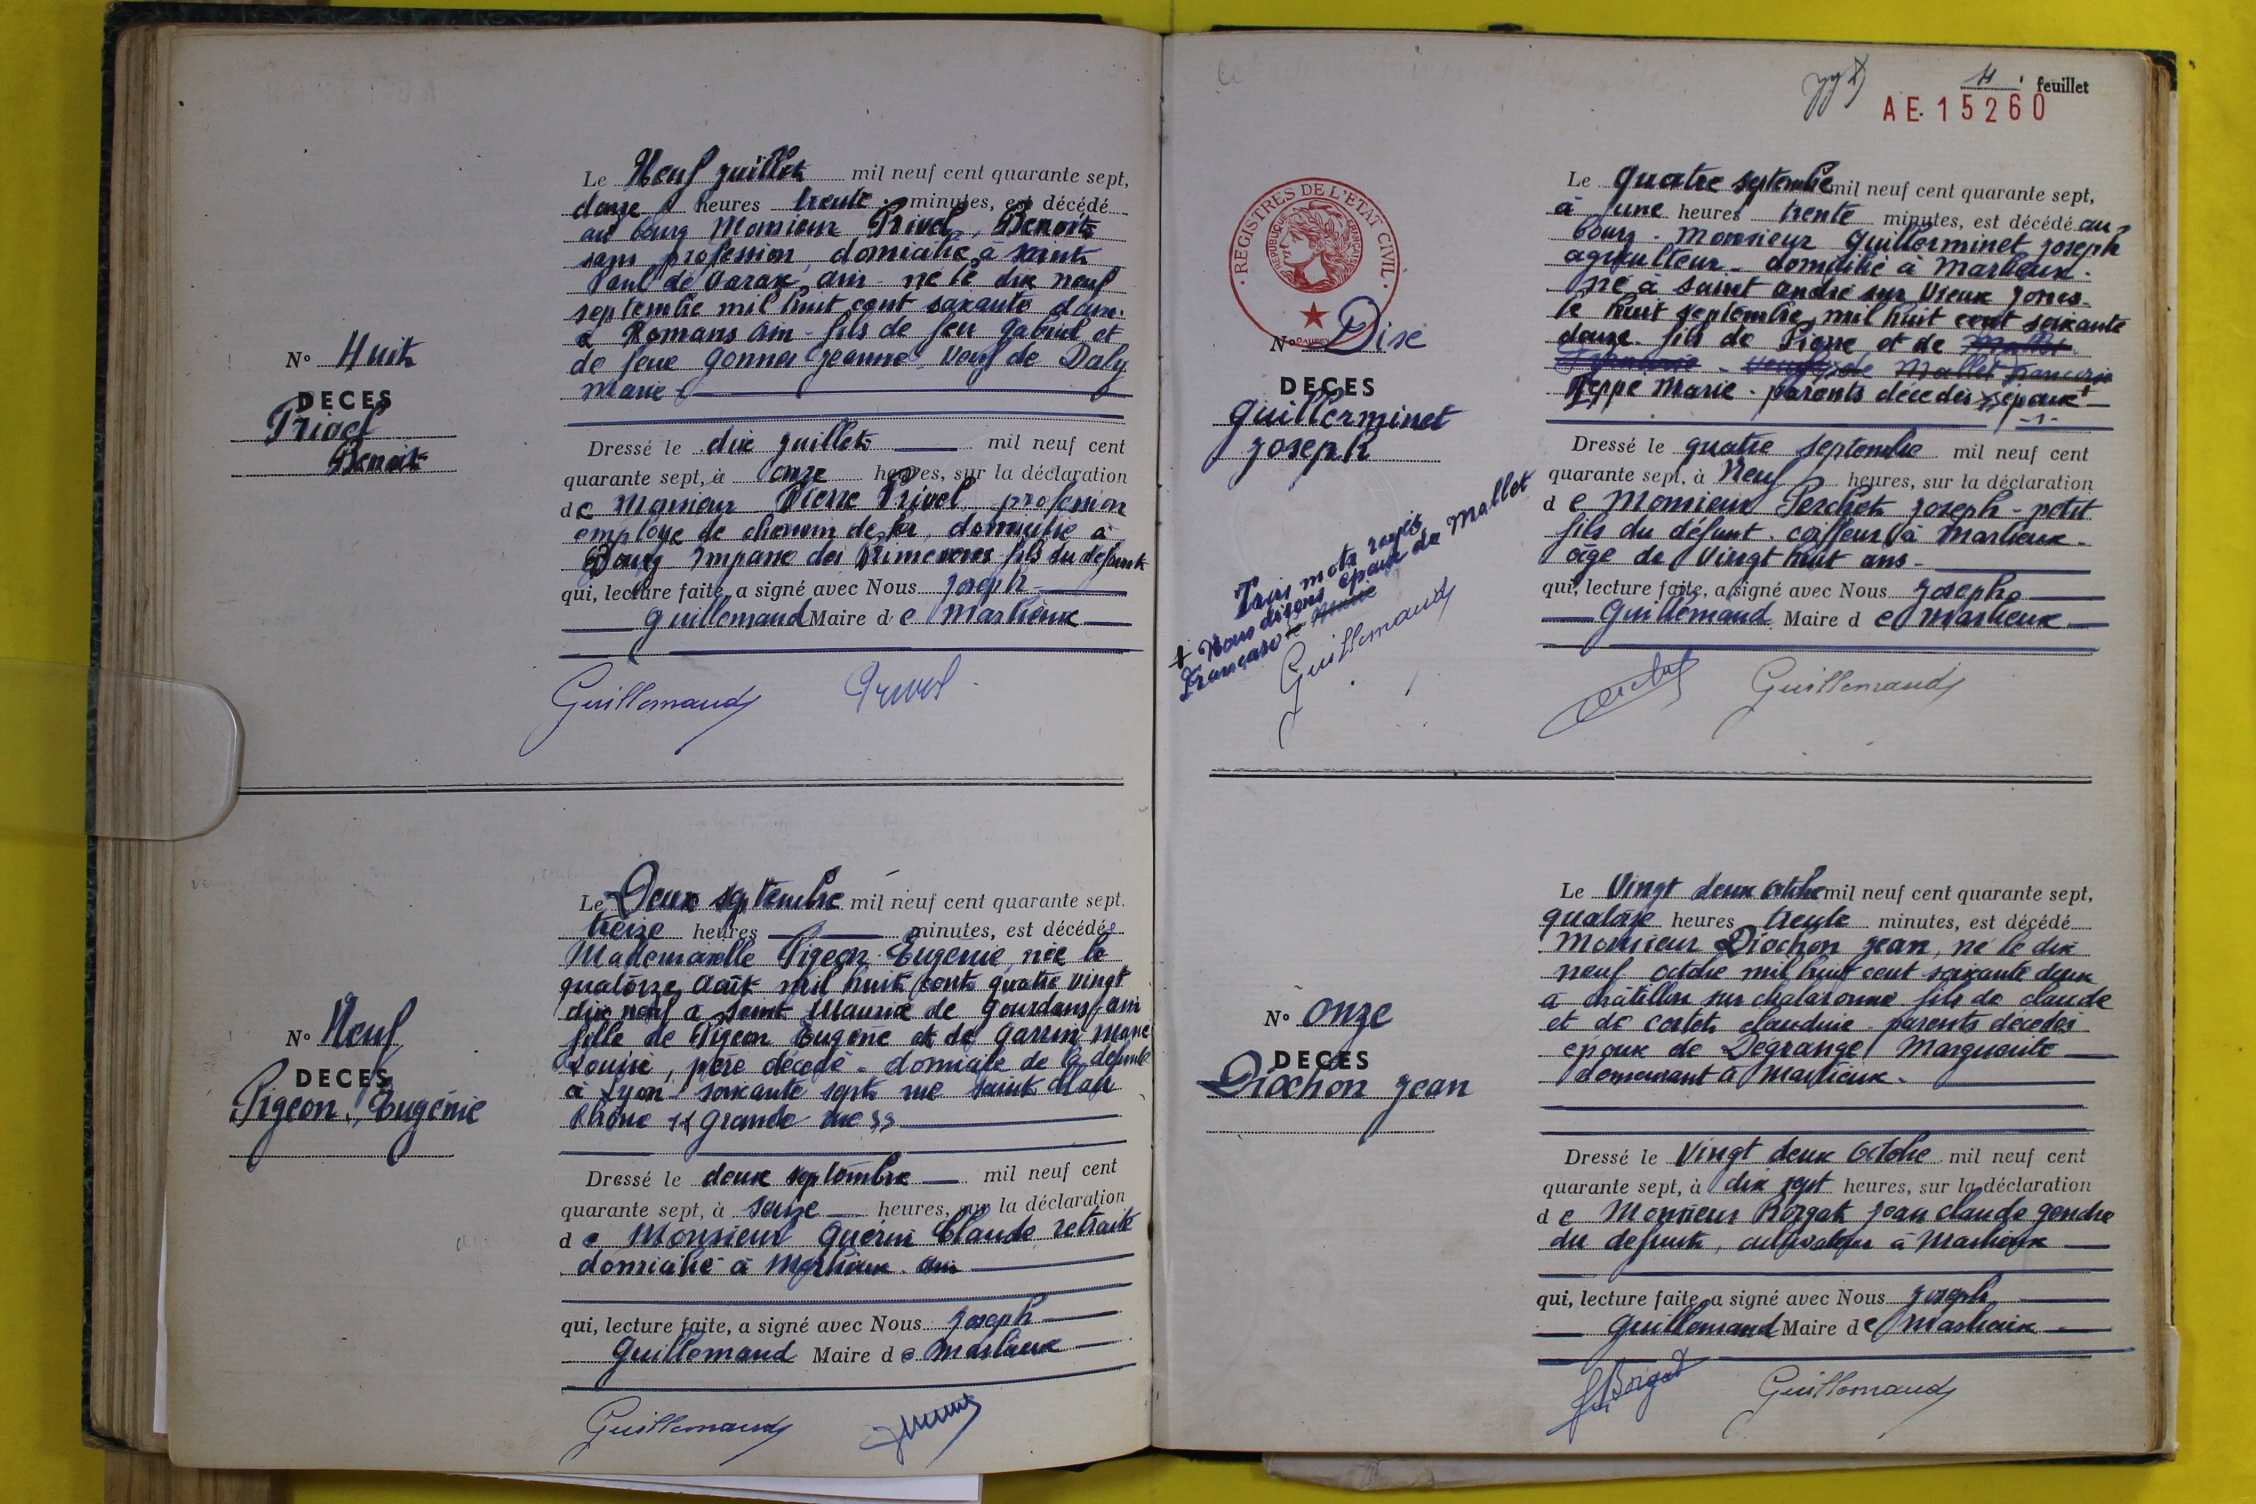 N° Huit
DECES
Privel
Benoit
Le Neuf juillet mil neuf cent quarante sept,
douze heures trente minutes, est décédé
au bourg Monsieur Privel, Benoit
sans profession, domicilié à saint
Paul de Varax, ain - né le dix neuf
septembre mil huit cent soixante deux.
à Romans ain - fils de feu Gabriel et
de feue Gonnet Jeanne - Veuf de Daly
Marie
Dressé le dix juillet mil neuf cent
quarante sept, à onze heures, sur la déclaration
de Monsieur Pierre Privel, profession
employé de chemin de fer, domicilié à
Bourg Impasse des Primevères fils du défunt
qui, lecture faite, a signé avec Nous Joseph
Guillemaud Maire de Marlieux
Guillemaud Privel
N° Neuf
DECES
Pigeon, Eugénie
Le Deux septembre mil neuf cent quarante sept.
treize heures minutes, est décédée
Mademoiselle Pigeon Eugénie, née le
quatorze août mil huit cent quatre vingt
dix neuf à Saint Maurice de Gourdans, ain
fille de Pigeon Eugène et de Garrin Marie
Louise, père décédé - domicile de la défunte
à Lyon soixante sept rue saint
Rhône grande rue
Dressé le deux septembre mil neuf cent
quarante sept, à seize heures, sur la déclaration
de Monsieur Guérin Claude retraité
domicilié à Marlieux. ain
qui, lecture faite, a signé avec Nous Joseph
Guillemaud Maire de Marlieux
Guillemaud
4 feuillet
AE.15260
REGISTRES DE L'ÉTAT CIVIL
N° Dix
DECES
Guillerminet
Joseph
Trois mots rayés
+ Nous disons époux de Mallet
Francoise Marie
Guillemaud
Le Quatre septembre mil neuf cent quarante sept,
à une heures trente minutes, est décédé au
bourg - Monsieur Guillerminet Joseph
agriculteur - domicilié à Marlieux.
né à saint andré sur Vieux Joncs.
le huit septembre mil huit cent soixante
douze. fils de Pierre et de Mallet
Françoise - veuf de Mallet Francoise
Teppe Marie - parents décédés époux +
Dressé le quatre septembre mil neuf cent
quarante sept, à Neuf heures, sur la déclaration
de Monsieur Perchet Joseph - petit
fils du défunt. coiffeur à Marlieux -
âge de Vingt huit ans -
qui, lecture faite, a signé avec Nous Joseph
Guillemaud Maire de Marlieux
Guillemaud
N° Onze
DECES
Diochon Jean
Le Vingt deux octobre mil neuf cent quarante sept,
quatorze heures trente minutes, est décédé
Monsieur Diochon Jean, né le dix
neuf octobre mil huit cent soixante deux
à châtillon sur chalaronne fils de claude
et de Cortet claudine - parents décédés
époux de Degrange Marguerite
demeurant à Marlieux.
Dressé le Vingt deux Octobre mil neuf cent
quarante sept, à dix sept heures, sur la déclaration
de Monsieur Borgat Jean claude gendre
du défunt, cultivateur à Marlieux
qui, lecture faite, a signé avec Nous Joseph
Guillemaud Maire de Marlieux
Borgat Guillemaud